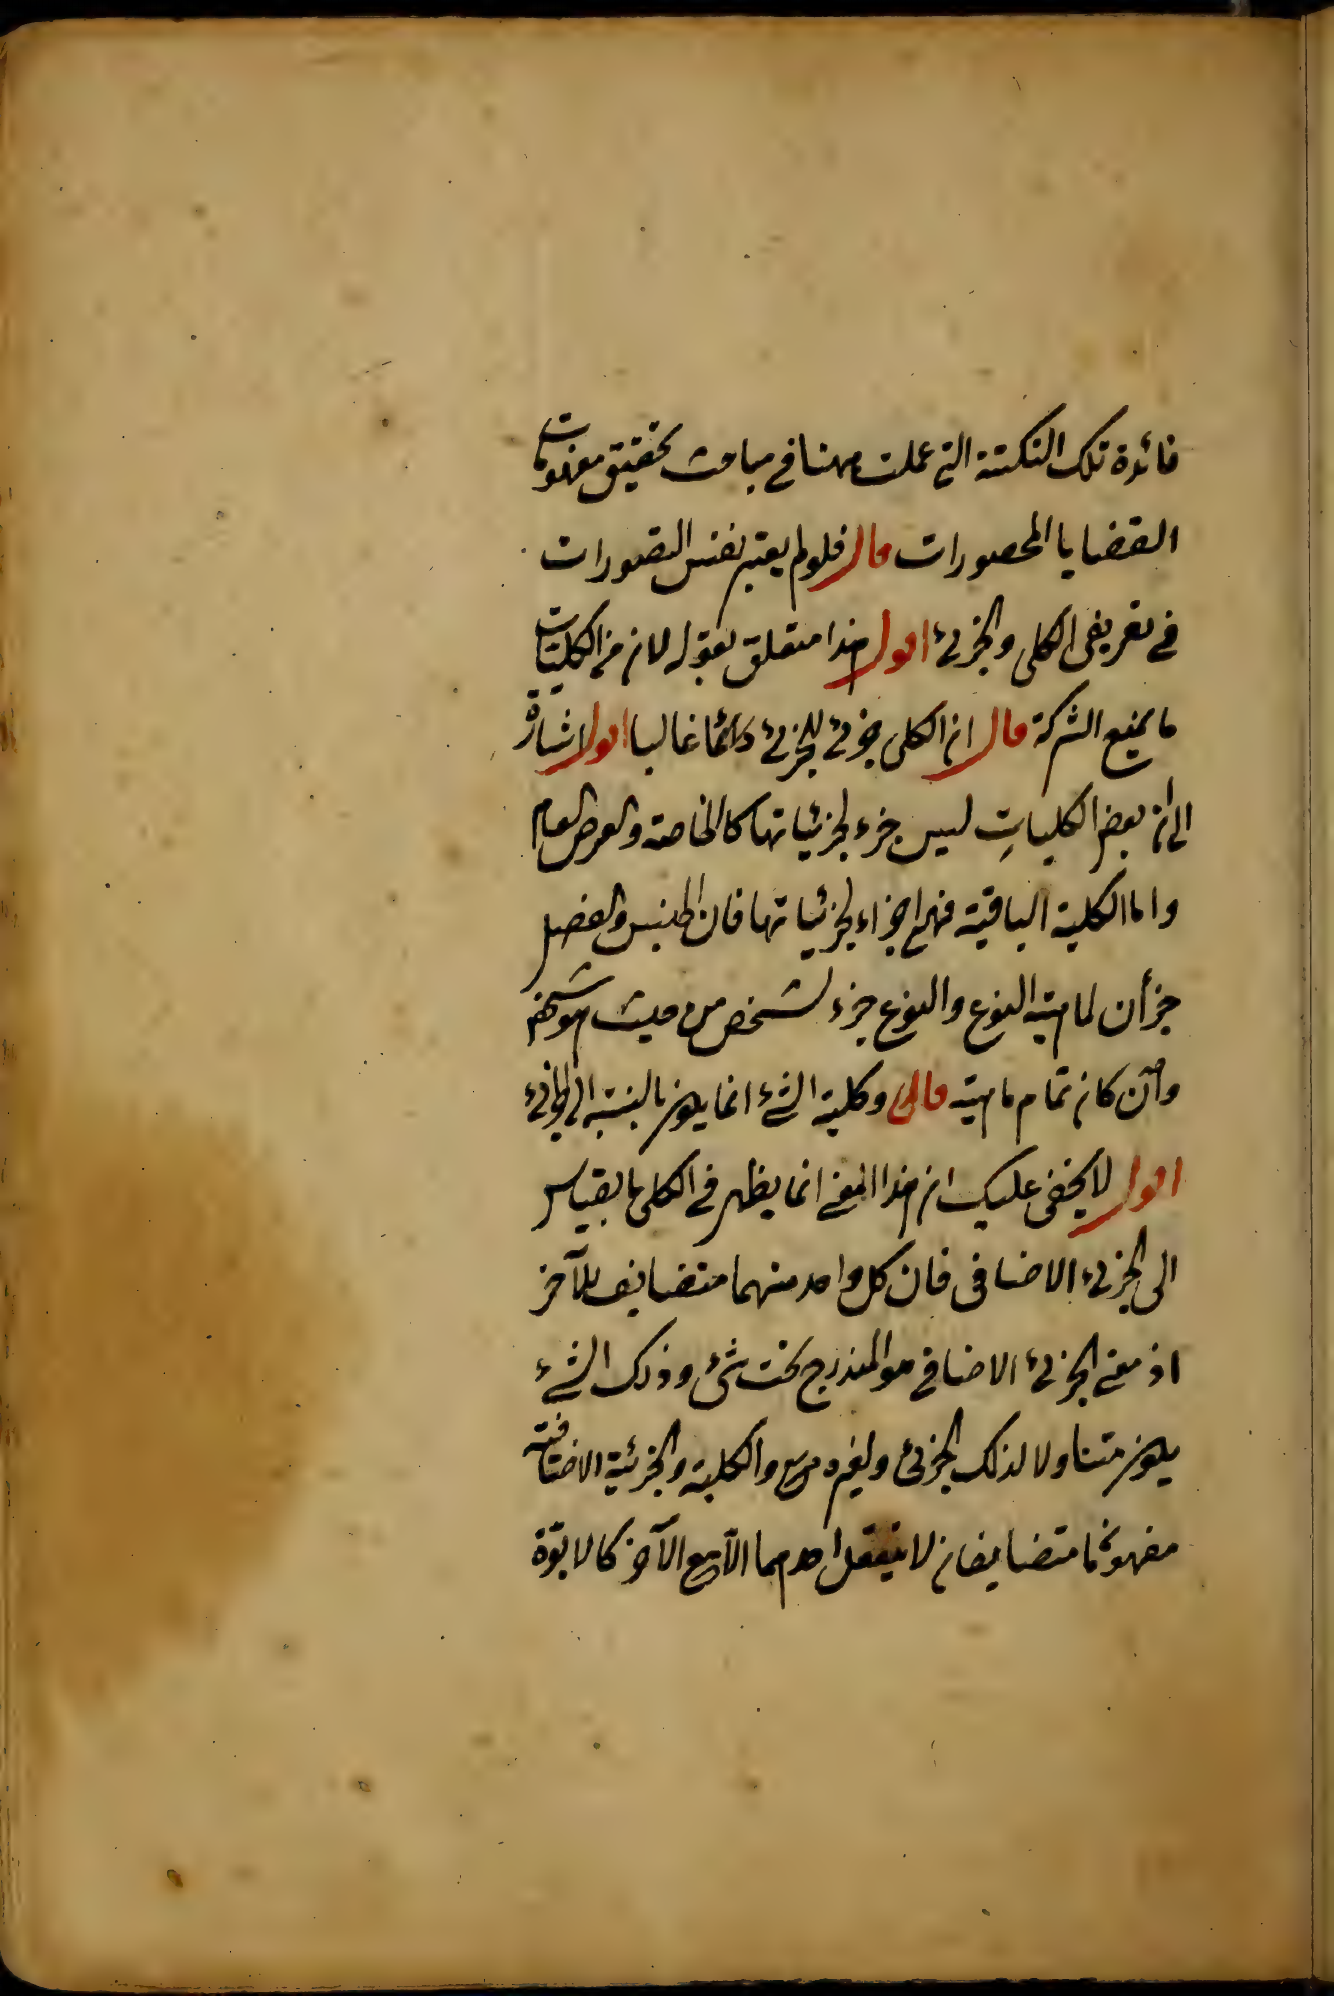 فائدة تلك النكتة التي عملت ههنا في مباحث تحقيق مفهومات
القضايا المحصورات قال فلو لم يعتبر نفس التصورات
في تعريفي الكلي والجزئ اقول هذا متعلق بقوله لان من الكليات
ما يمنع الشركة قال ان الكلي جزئ للجزئ دائما غالبا اقول اشارة
الى ان بعض الكلياتِ ليس جزء لجزئياتها كالخاصة والعرض العام
واما الكلية الباقية فهي اجزاء لجزئياتها فان الجنس والفصل
جزأن لماهية النوع والنوع جزء لشخص من حيث هو شخص
وان كان تمام ماهية قال وكلية الشئ انما يكون بالنسبة الى الجزئ
اقول لا يخفى عليك ان هذا المعنى انما يظهر في الكلي بالقياس
الى الجزئ الاضافى فان كل واحد منهما متضايف للآخر
اذ معنى الجزئ الاضافي هو المندرج تحت شئ وذلك الشئ
يكون متناولا لذلك الجزئ ولغيره والكلية والجزئية الاضافية
مفهوما متضايفان لا يتعقل احدهما الا مع الآخر كالابوّة